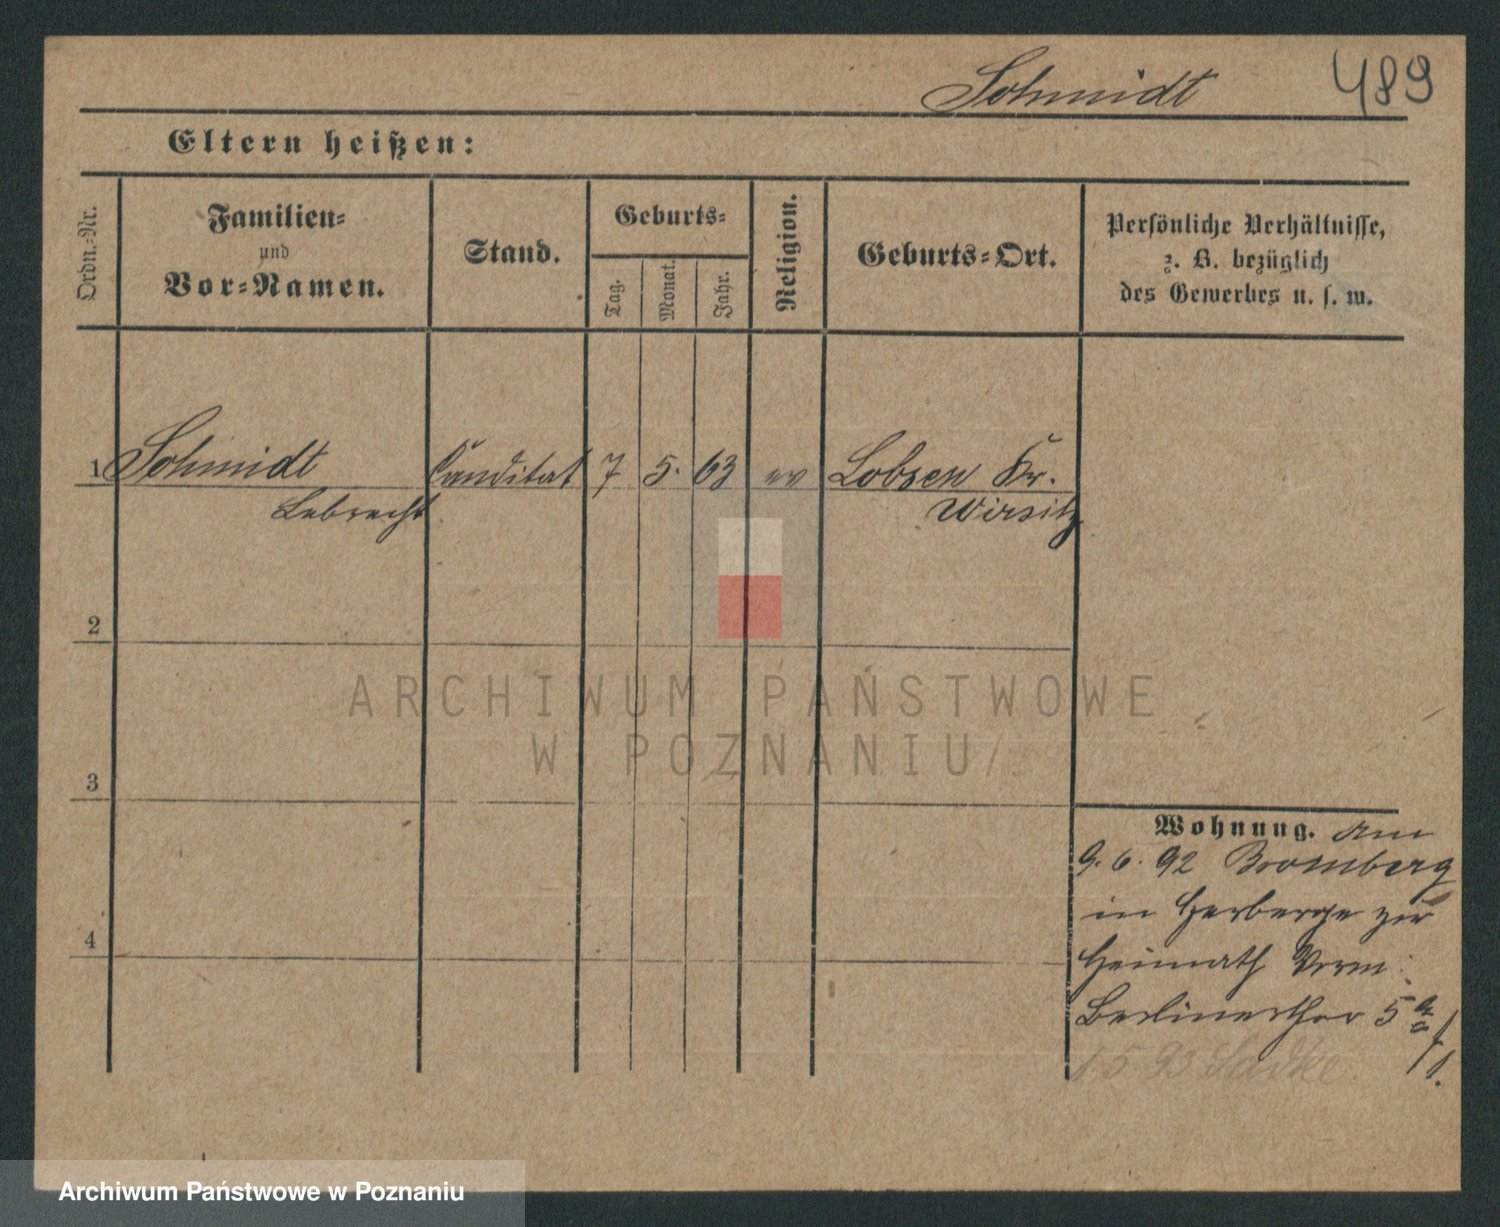 Schmidt 489
Eltern heißen:
Ordn.-Nr.
Familien-
und
Vor-Namen.
Stand.
Geburts-
Tag.
Monat.
Jahr.
Religion.
Geburts-Ort.
Persönliche Verhältnisse,
z. B. bezüglich
des Gewerbes u. s. w.
1 Schmidt Canditat 7 5. 63 ev Lobsen Kr.
Lebrecht Wirsitz
2
3
4
Wohnung. Am
9. 6. 92 Bromberg
in Herberge zur
Heimath
Berlinerthor 5
1 5 93 Sadke
ARCHIWUM PAŃSTWOWE
W POZNANIU
Archiwum Państwowe w Poznaniu